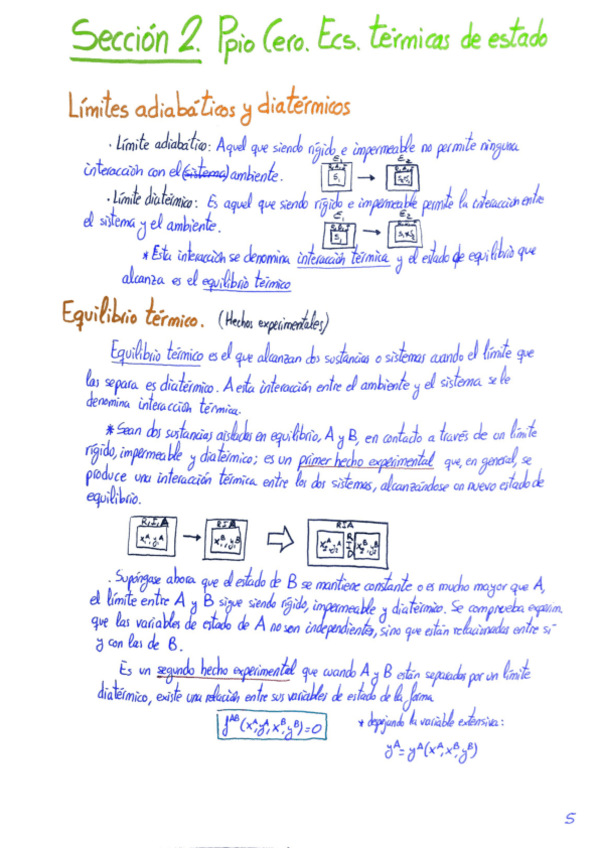 Sección 2. Ppio Cero. Ecs. térmicas de estado
Límites adiabáticos y diatérmicos
· Límite adiabático: Aquel que siendo rígido e impermeable no permite ninguna
interacción con el (sistema) ambiente.
E₁ E₂
S₁
· Límite diatérmico: Es aquel que siendo rígido e impermeable permite la interacción entre
el sistema y el ambiente.
E₁ E₂
S₁
* Esta interacción se denomina interacción térmica y el estado de equilibrio que
alcanza es el equilibrio térmico
Equilibrio térmico. (Hechos experimentales)
Equilibrio térmico es el que alcanzan dos sustancias o sistemas cuando el límite que
las separa es diatérmico. A esta interacción entre el ambiente y el sistema se le
denomina interacción térmica.
* Sean dos sustancias aisladas en equilibrio, A y B, en contacto a través de un límite
rígido, impermeable y diatérmico; es un primer hecho experimental que, en general, se
produce una interacción térmica entre los dos sistemas, alcanzándose un nuevo estado de
equilibrio.
R,I,A → RIA ⇒ RIA
· Supóngase ahora que el estado de B se mantiene constante o es mucho mayor que A,
el límite entre A y B sigue siendo rígido, impermeable y diatérmico. Se comprueba experim.
que las variables de estado de A no son independientes, sino que están relacionadas entre sí
y con las de B.
Es un segundo hecho experimental que cuando A y B están separados por un límite
diatérmico, existe una relación entre sus variables de estado de la forma
f^AB (x^A, y^A, x^B, y^B) = 0 * despejando la variable extensiva:
y^A = y^A (x^A, x^B, y^B)
5